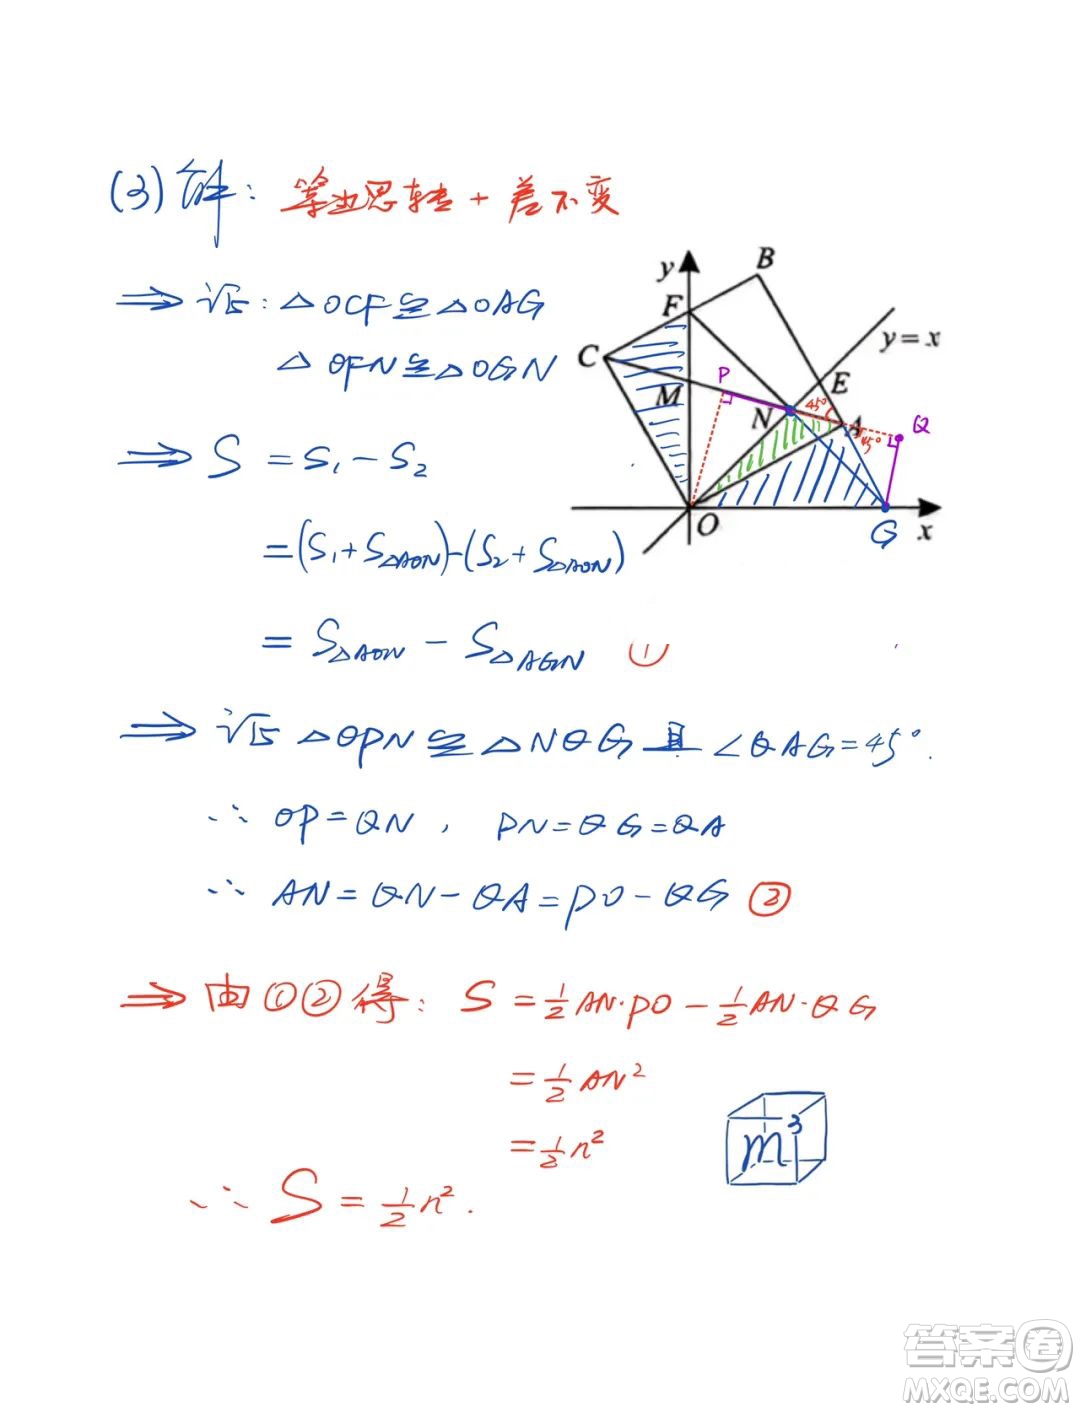 (3) 解: 等边思转 + 差不变
⇒ 证: △OCF≌△OAG
△OFN≌△OGN
⇒ S = S₁ - S₂
= (S₁ + S△AON) - (S₂ + S△AON)
= S△AON - S△AGN ①
⇒ 证 △OPN ≌ △NQG 且 ∠QAG = 45°.
∴ OP = QN , PN = QG = QA
∴ AN = QN - QA = PO - QG ②
⇒ 由①②得: S = ½AN·PO - ½AN·QG
= ½AN²
= ½n²
∴ S = ½n².
y
B
F
y = x
C
P
E
M
N
45°
A
Q
45°
O
G
x
m³
答案卷
MXQE.COM